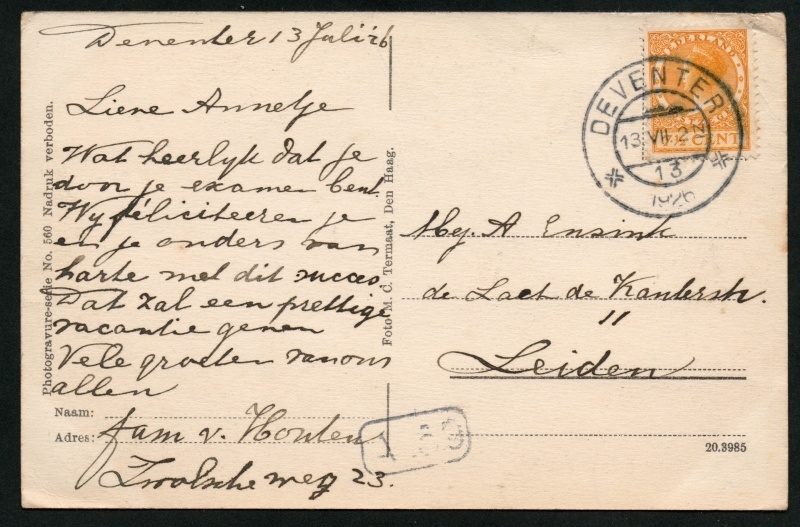 Deventer 13 Juli '26
Lieve Annetje
Wat heerlijk dat je
door je examen bent
Wij feliciteeren je
en je ouders van
harte met dit succes
Dat zal een prettige
vacantie geven
Vele groeten van ons
allen
Naam:
Adres: fam v. Houten
Zwolsche weg 23.
Photogravure-serie No. 560 Nadruk verboden.
Foto M. C. Termaat, Den Haag.
NEDERLAND
CENT
DEVENTER
13 VII. 2 N
13
1926
Mej. A Ensink
de Laet de Kanterstr.
11
Leiden
20.3985